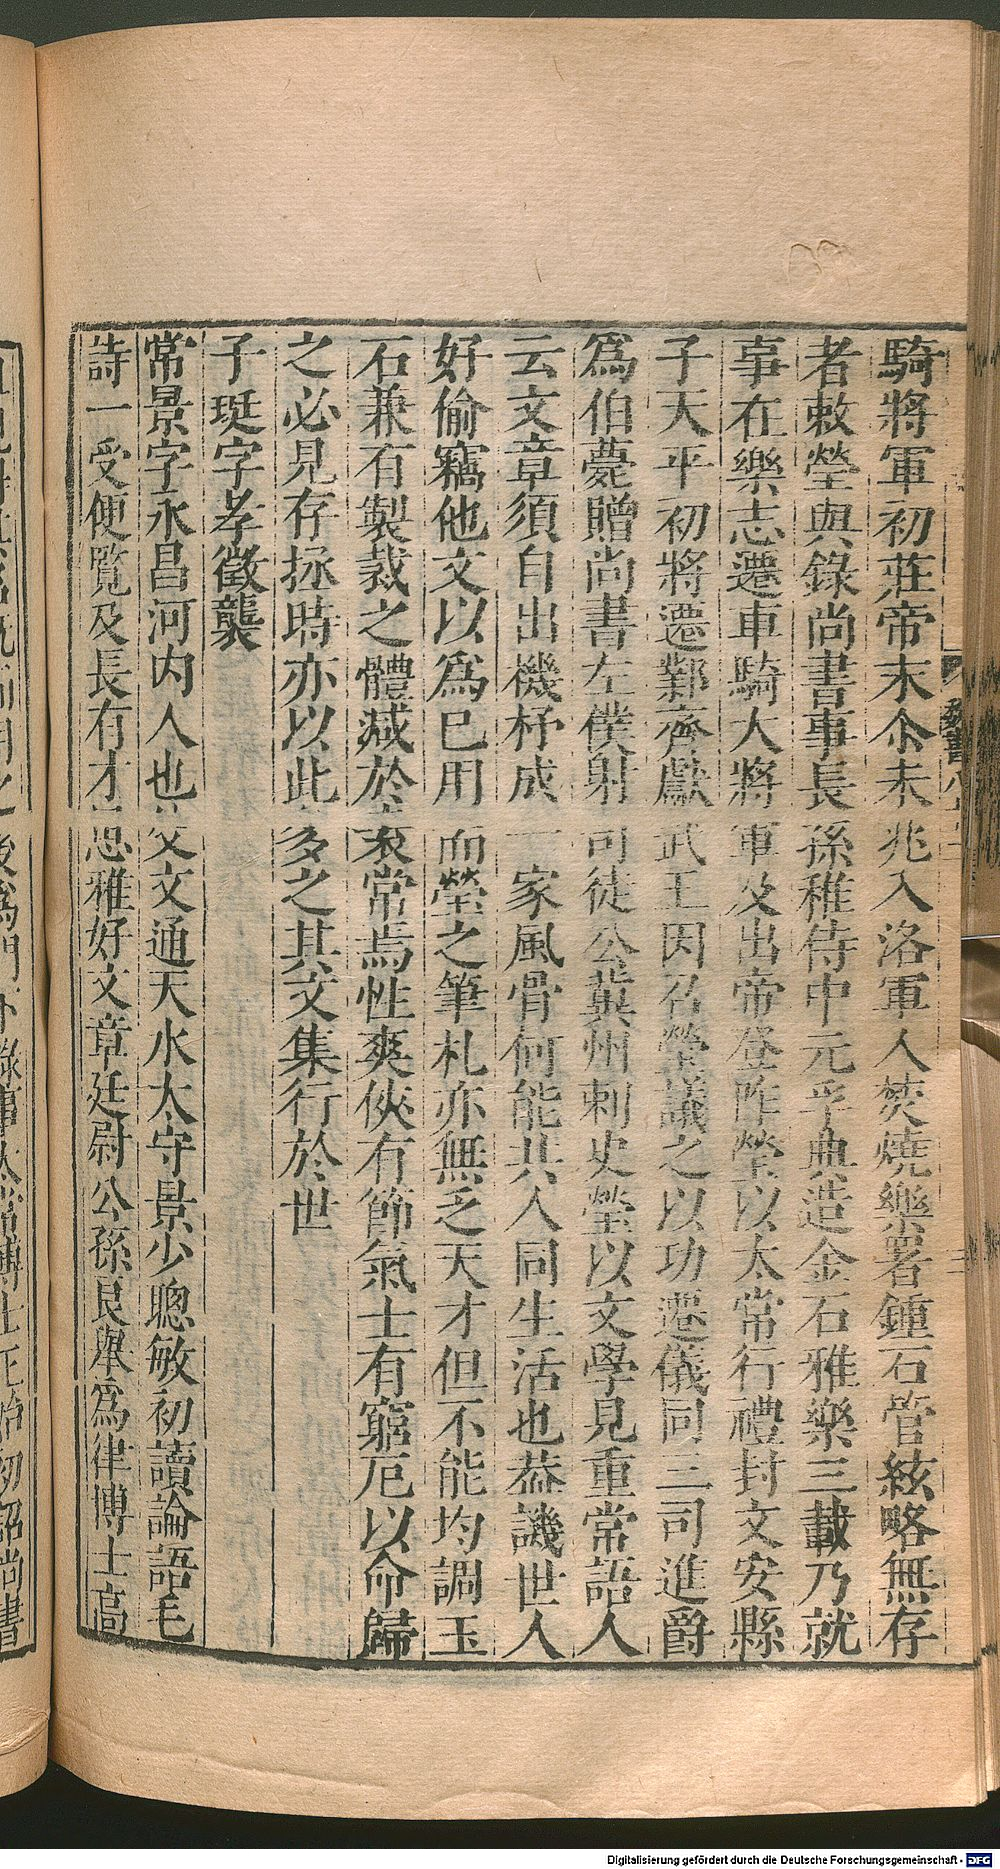 騎將軍初莊帝末尒朱兆入洛軍人焚燒樂署鍾石管絃略無存
者敕瑩與錄尚書事長孫稚侍中元孚典造金石雅樂三載乃就
事在樂志遷車騎大將軍及出帝登阼瑩以太常行禮封文安縣
子天平初將遷鄴齊獻武王因召瑩議之以功遷儀同三司進爵
爲伯薨贈尚書左僕射司徒公冀州刺史瑩以文學見重常語人
云文章須自出機杼成一家風骨何能共人同生活也葢譏世人
好偷竊他文以爲已用而瑩之筆札亦無乏天才但不能均調玉
石兼有製裁之體減於袁常焉性爽俠有節氣士有窮厄以命歸
之必見存拯時亦以此多之其文集行於世
子珽字孝徵襲
常景字永昌河內人也父文通天水太守景少聰敏初讀論語毛
詩一受便覽及長有才思雅好文章廷尉公孫良舉爲律博士高
魏書八十二
後爲門下錄事太常博士正始初詔尚書
Digitalisierung gefördert durch die Deutsche Forschungsgemeinschaft - DFG